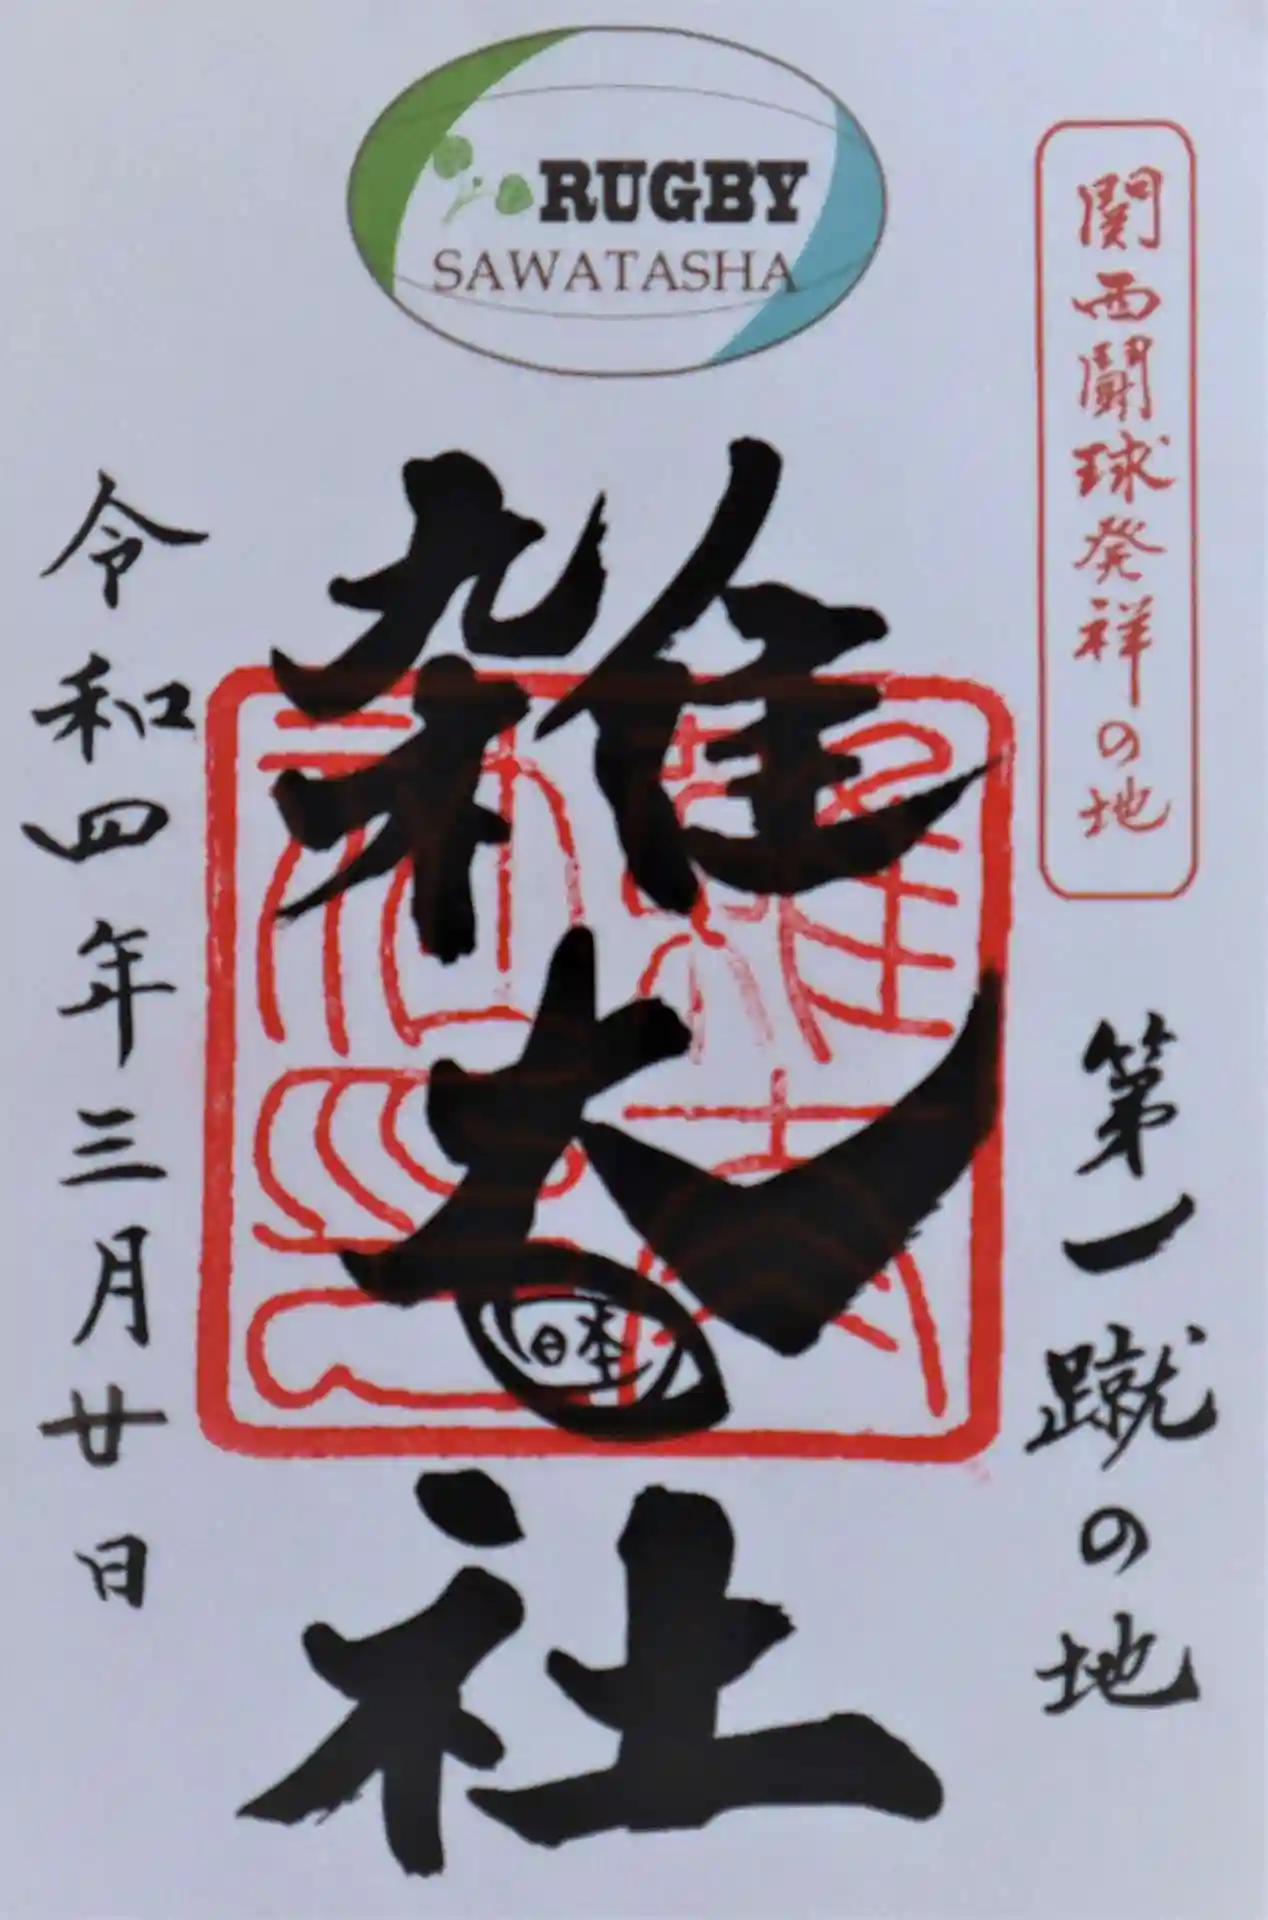 RUGBY
SAWATASHA
関西闘球発祥の地
第一蹴の地
雑太社
令和四年三月廿日